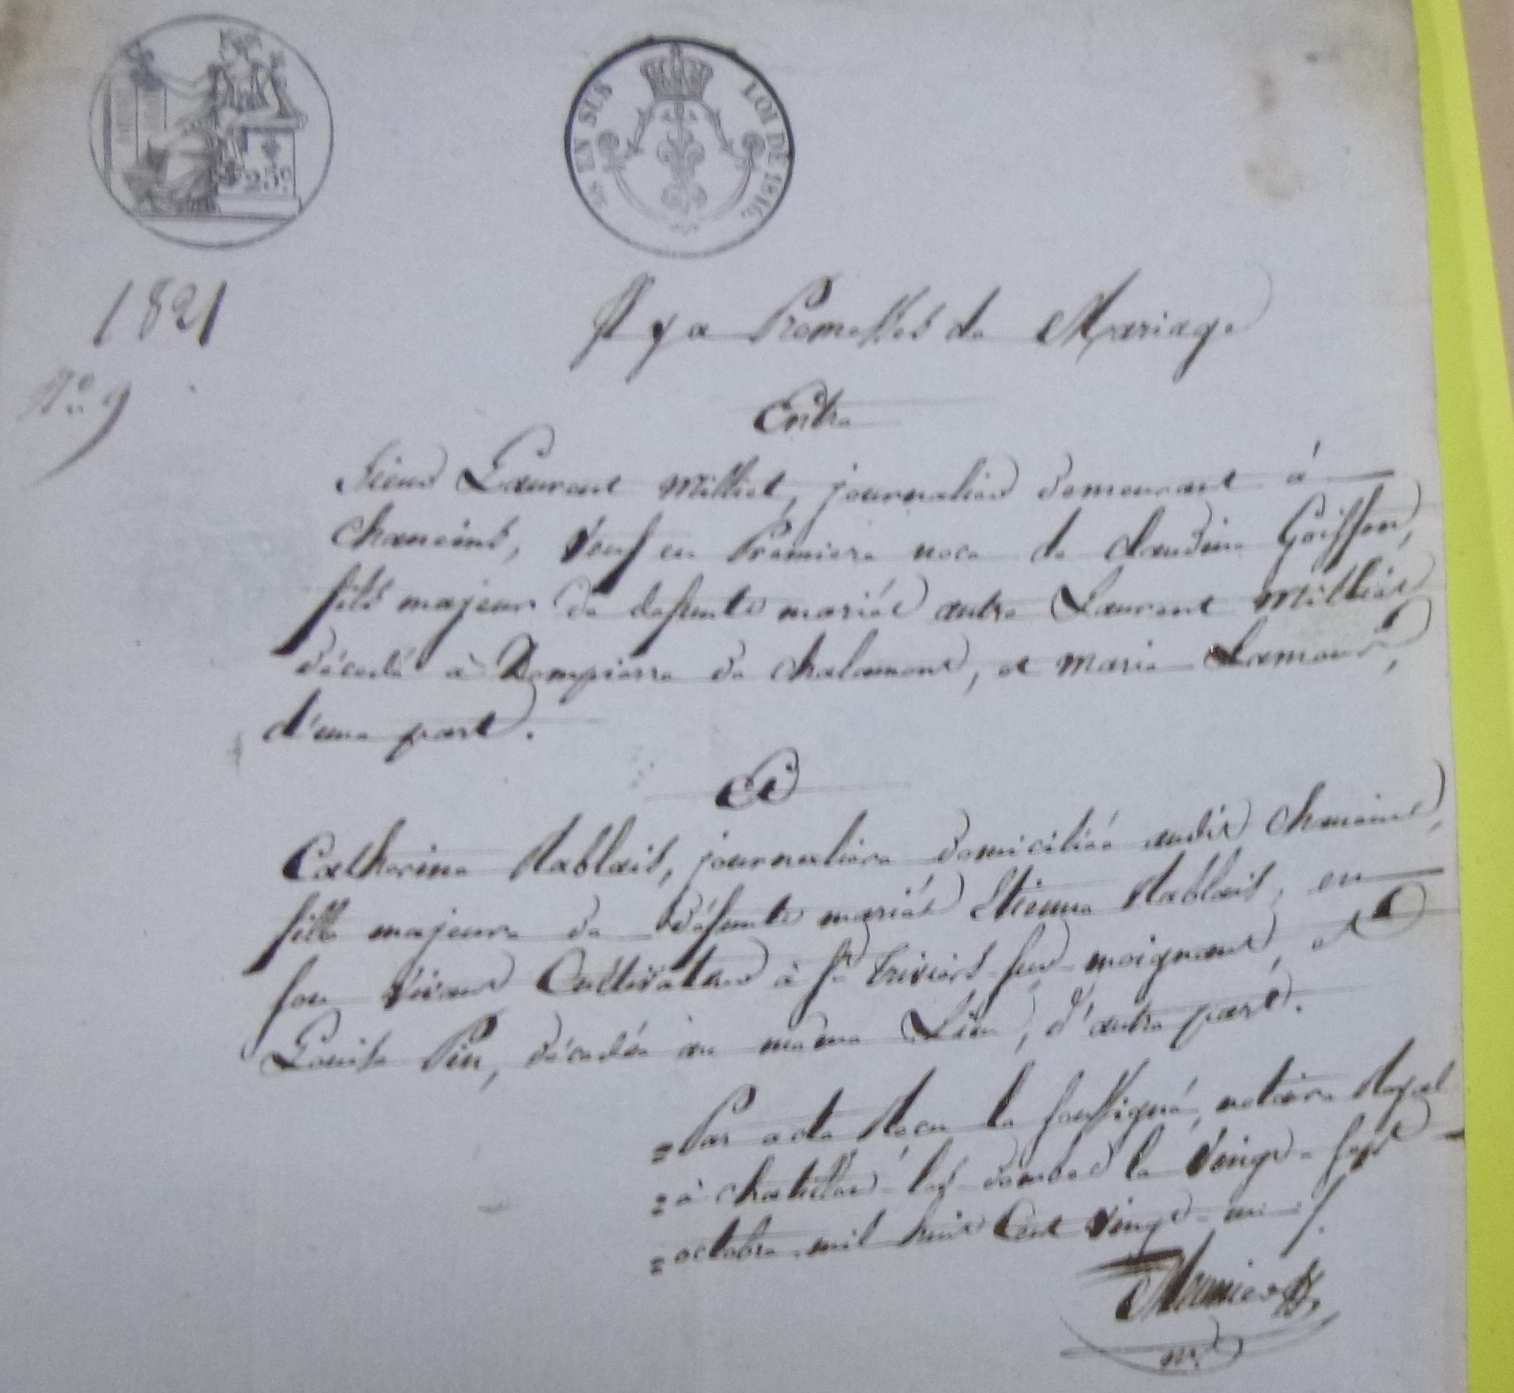 25c
EN SUS LOI DE 1816.
1821
No. 9
Il y a Promesses de Mariage
Entre
Sieur Laurent Milliet, journalier demeurant à
chaneins, Veuf en Premiere noce de claudine Goiffon,
fils majeur de defunts mariés autre Laurent Milliet
décédé à Dompierre de chalamont, et Marie Lamour,
d'une part.
Et
Catherine Rablais, journaliere domiciliée audit chaneins,
fille majeure de défunts mariés Etienne Rablais, en
son vivant Cultivateur à St. triviers sur moignans, et
Louise Pin, décédés au même Lieu, d'autre part.
= Par acte Recu le soussigné, notaire Royal
= à chatillon les dombes le vingt sept
= octobre mil huit Cent vingt un /.